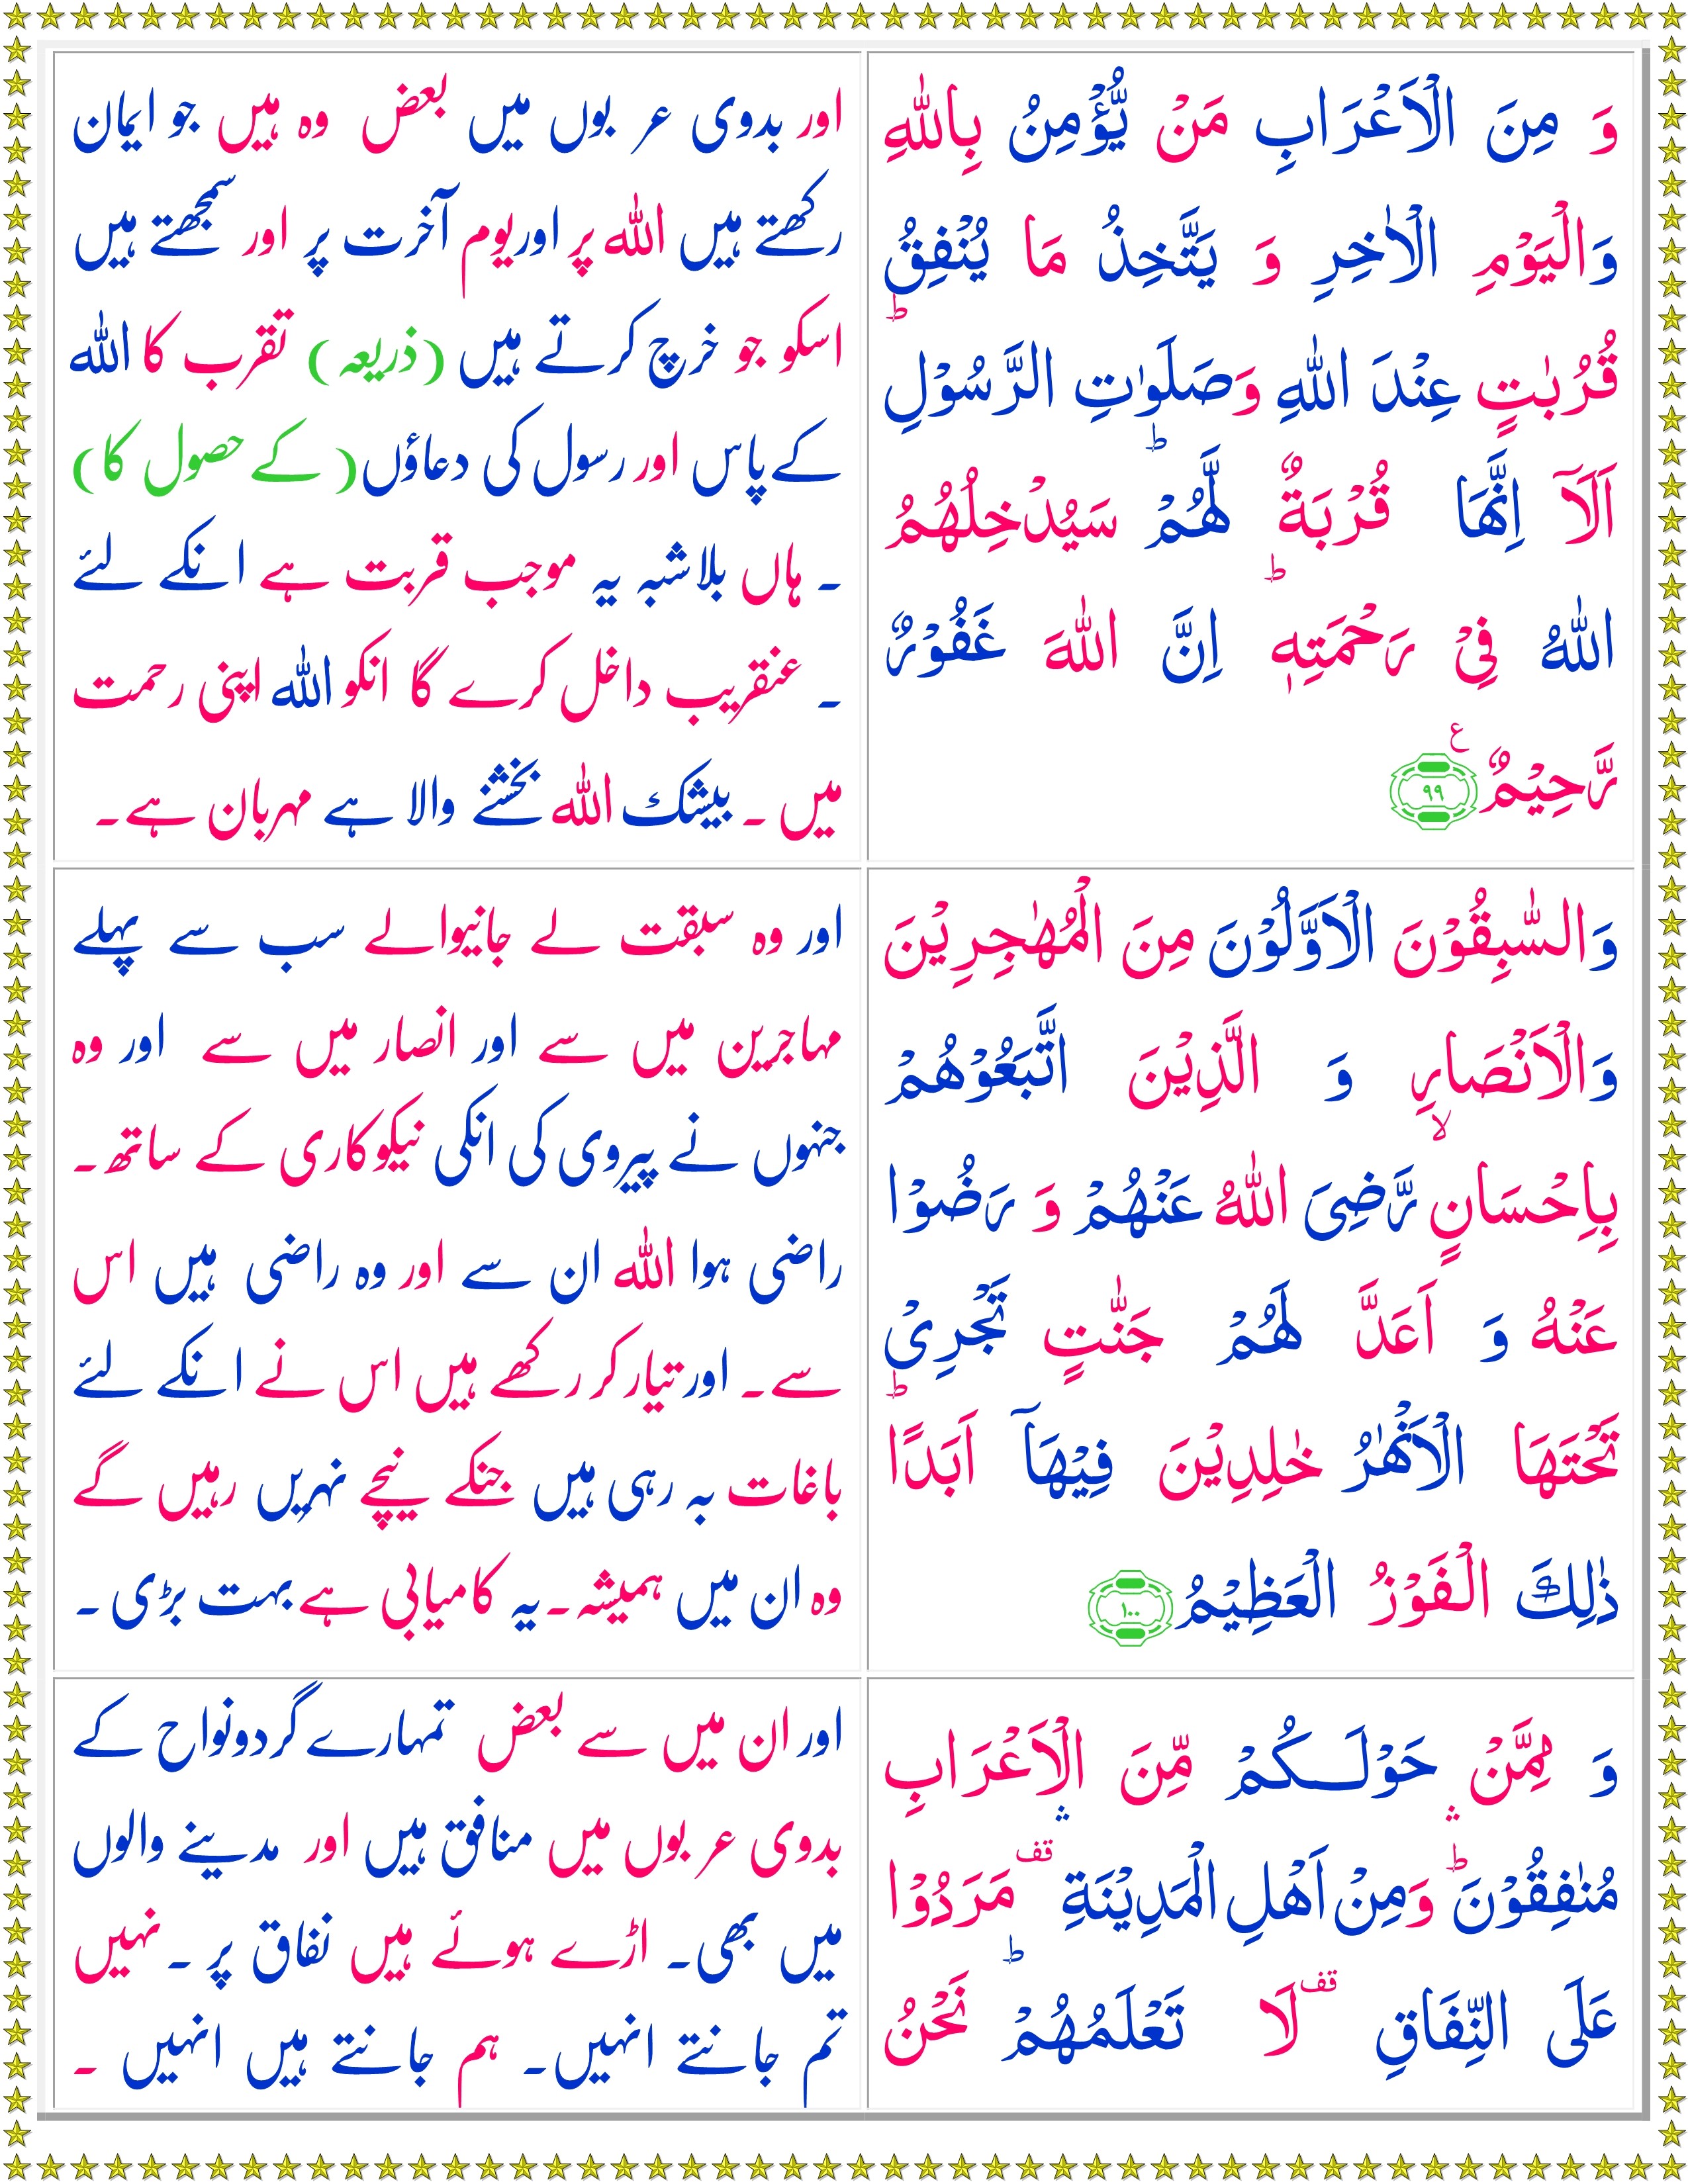 وَ مِنَ الْاَعْرَابِ مَنْ يُّؤْمِنُ بِاللّٰهِ
وَالْيَوْمِ الْاٰخِرِ وَ يَتَّخِذُ مَا يُنْفِقُ
قُرُبٰتٍ عِنْدَ اللّٰهِ وَصَلَوٰتِ الرَّسُوْلِ ؕ
اَلَاۤ اِنَّهَا قُرْبَةٌ لَّهُمْ ؕ سَيُدْخِلُهُمُ
اللّٰهُ فِىْ رَحْمَتِهٖ ؕ اِنَّ اللّٰهَ غَفُوْرٌ
رَّحِيْمٌ ۧ ﴿۹۹﴾
اور بدوی عر بوں میں بعض وہ ہیں جو ایمان
رکھتے ہیں اللہ پر اور یوم آخرت پر اور سمجھتے ہیں
اسکو جو خرچ کرتے ہیں (ذریعہ) تقرب کا اللہ
کے پاس اور رسول کی دعاؤں ( کے حصول کا)
۔ ہاں بلاشبہ یہ موجب قربت ہے انکے لئے
۔ عنقریب داخل کرے گا انکو اللہ اپنی رحمت
میں ۔ بیشک اللہ بخشنے والا ہے مہربان ہے۔
وَالسّٰبِقُوْنَ الْاَوَّلُوْنَ مِنَ الْمُهٰجِرِيْنَ
وَالْاَنْصَارِ وَ الَّذِيْنَ اتَّبَعُوْهُمْ
بِاِحْسَانٍ ۙ رَّضِىَ اللّٰهُ عَنْهُمْ وَ رَضُوْا
عَنْهُ وَ اَعَدَّ لَهُمْ جَنّٰتٍ تَجْرِىْ
تَحْتَهَا الْاَنْهٰرُ خٰلِدِيْنَ فِيْهَاۤ اَبَدًا ؕ
ذٰلِكَ الْفَوْزُ الْعَظِيْمُ ﴿۱۰۰﴾
اور وہ سبقت لے جانیوالے سب سے پہلے
مہاجرین میں سے اور انصار میں سے اور وہ
جنہوں نے پیروی کی انکی نیکوکاری کے ساتھ۔
راضی ہوا اللہ ان سے اور وہ راضی ہیں اس
سے۔ اور تیار کر رکھے ہیں اس نے انکے لئے
باغات بہ رہی ہیں جنکے نیچے نہریں رہیں گے
وہ ان میں ہمیشہ۔ یہ کامیابی ہے بہت بڑی ۔
وَ مِمَّنْ حَوْلَــكُمْ مِّنَ الْاَعْرَابِ
مُنٰفِقُوْنَ ۛؕ وَمِنْ اَهْلِ الْمَدِيْنَةِ ۛؔ قف مَرَدُوْا
عَلَى النِّفَاقِ قف لَا تَعْلَمُهُمْ ؕ نَحْنُ
اور ان میں سے بعض تمہارے گردونواح کے
بدوی عر بوں میں منافق ہیں اور مدینے والوں
میں بھی۔ اڑے ہوئے ہیں نفاق پر ۔ نہیں
تم جانتے انہیں۔ ہم جانتے ہیں انہیں ۔